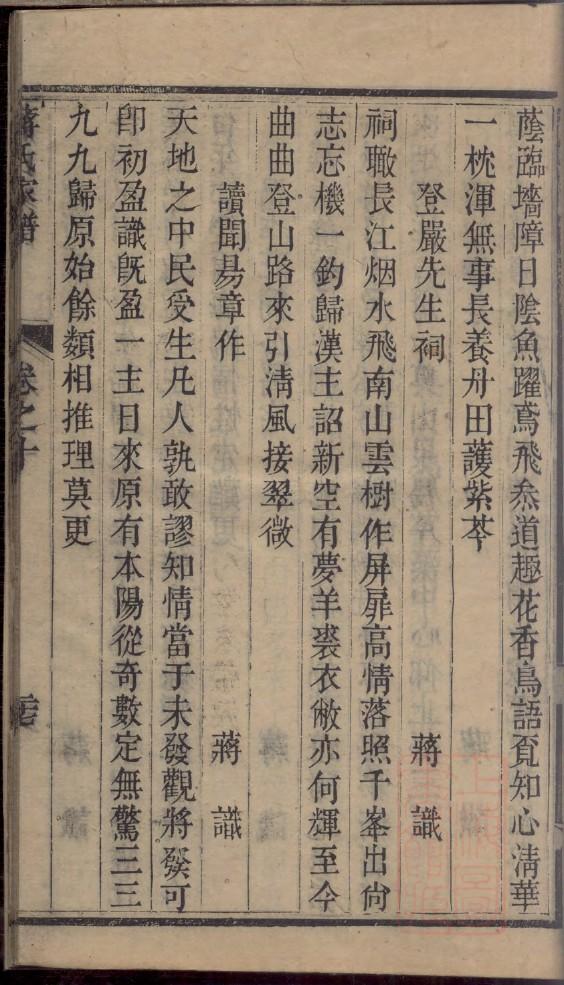 蔭臨墻障日陰魚躍鳶飛叅道趣花香鳥語覔知心淸華
一枕渾無事長養丹田護紫芩
登嚴先生祠 蔣識
祠瞰長江烟水飛南山雲樹作屏扉高情落照千峯出尙
志忘機一釣歸漢主詔新空有夢羊裘衣敝亦何輝至今
曲曲登山路來引淸風接翠微
讀聞昜章作 蔣識
天地之中民受生凡人孰敢謬知情當于未發觀將發可
卽初盈識旣盈一主日來原有本陽從奇數定無驚三三
九九歸原始餘類相推理莫更
蔣氏家譜 卷之十